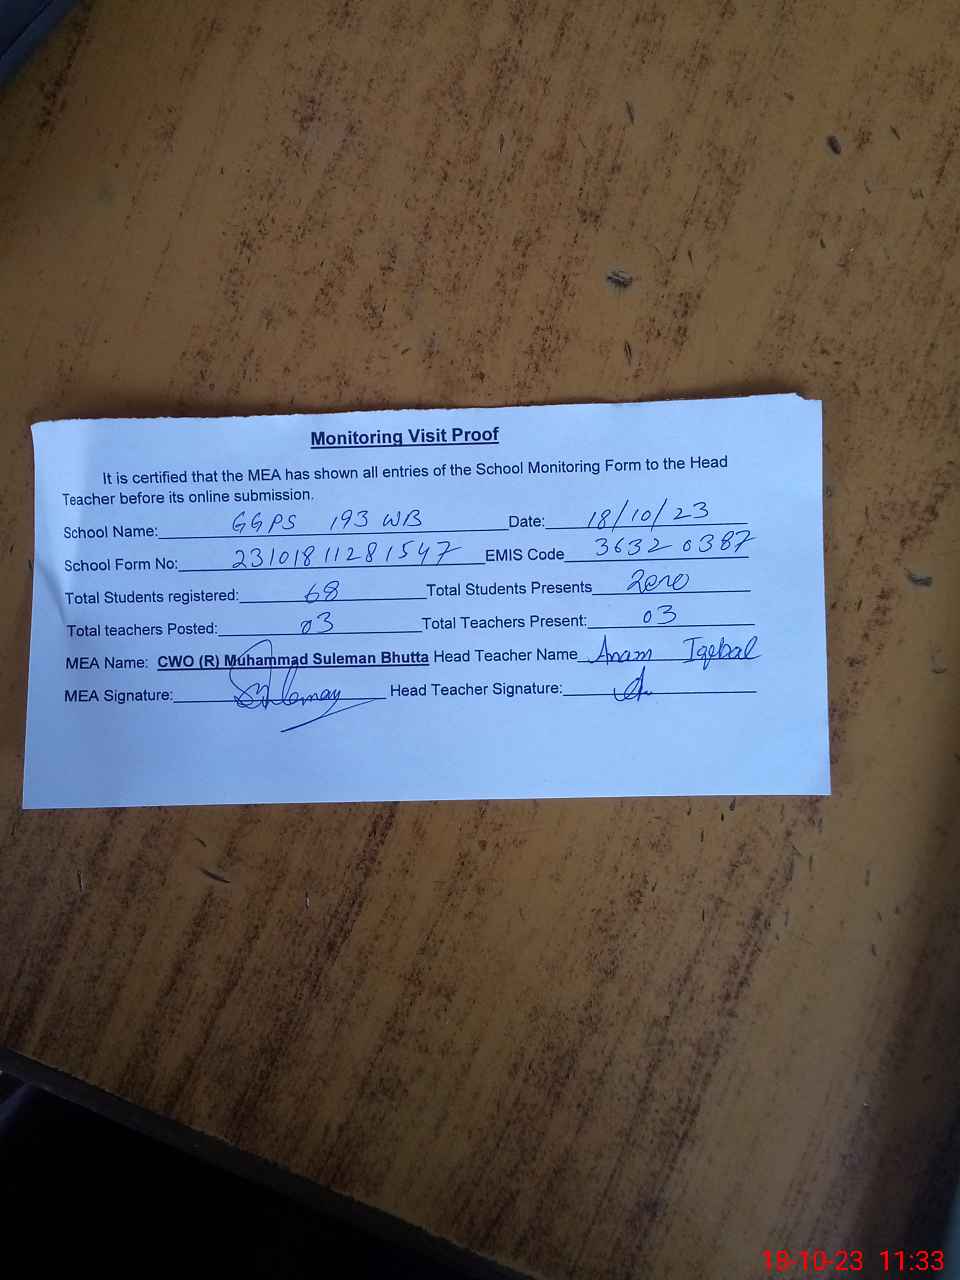 Monitoring Visit Proof
It is certified that the MEA has shown all entries of the School Monitoring Form to the Head
Teacher before its online submission.
School Name: GGPS 193 WB Date: 18/10/23
School Form No: 23101811281547 EMIS Code 36320387
Total Students registered: 68 Total Students Presents Zero
Total teachers Posted: 03 Total Teachers Present: 03
MEA Name: CWO (R) Muhammad Suleman Bhutta Head Teacher Name Anam Iqbal
MEA Signature: Head Teacher Signature:
18-10-23 11:33